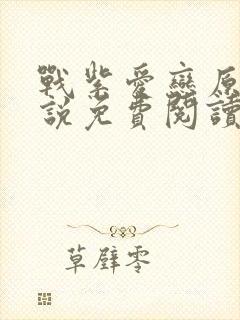 戰柴愛戀原
說免費閱讀
草壁零